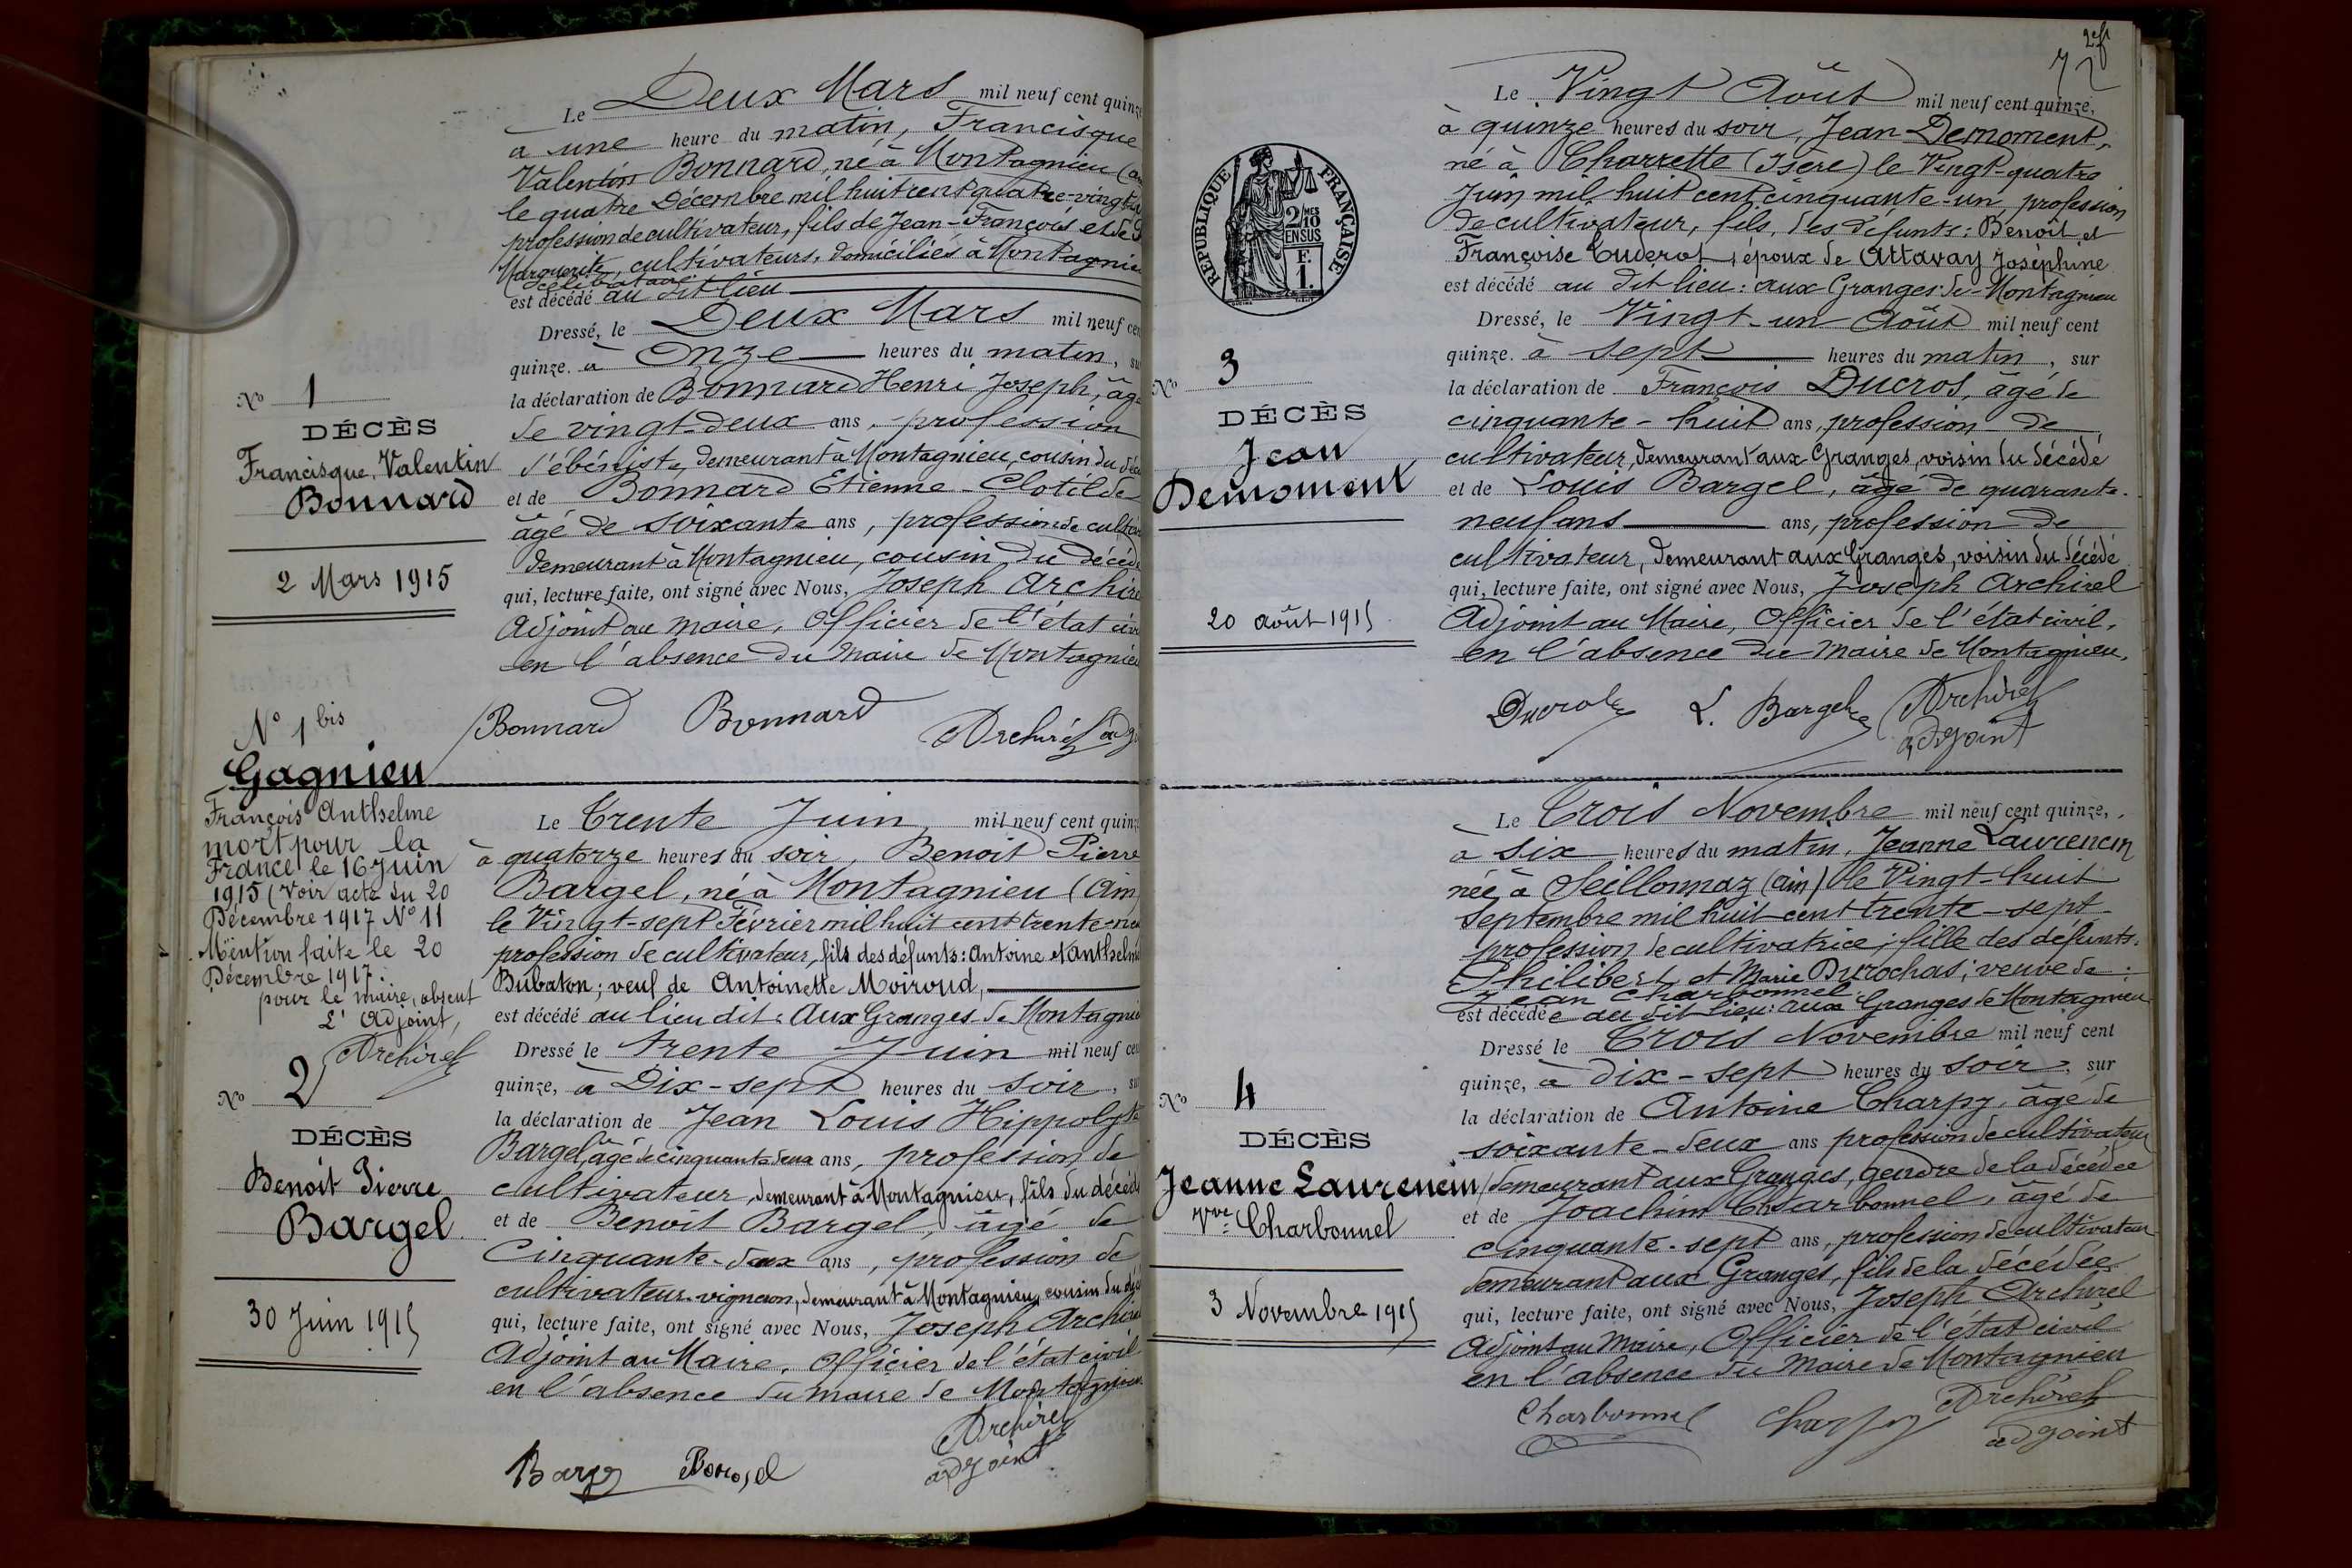 Le Deux Mars mil neuf cent quinze
à une heure du matin, Francisque
Valentin Bonnard, né à Montagnieu
le quatre Décembre mil huit cent quatre-vingt
profession de cultivateur, fils de Jean-François et de
Marguerite, cultivateurs, domiciliés à Montagnieu
célibataire
est décédé au dit lieu
Dressé, le Deux Mars mil neuf cent
quinze. à Onze heures du matin, sur
la déclaration de Bonnard Henri Joseph, âgé
de vingt-deux ans, profession
d'ébéniste, demeurant à Montagnieu, cousin du
et de Bonnard Etienne-Clotilde
âgé de soixante ans, profession de
demeurant à Montagnieu, cousin du décédé
qui, lecture faite, ont signé avec Nous, Joseph Archirel
Adjoint au maire, Officier de l'état civil
en l'absence du Maire de Montagnieu
Bonnard Bonnard Archirel
No 1
DÉCÈS
Francisque, Valentin
Bonnard
2 Mars 1915
N° 1 bis
Gagnieu
François Anthelme
mort pour la
France le 16 Juin
1915 (Voir acte du 20
Décembre 1917 N° 11
Mention faite le 20
Décembre 1917.
pour le maire, absent
L'Adjoint,
Archirel
Le Trente Juin, mil neuf cent quinze
à quatorze heures du soir, Benoit Pierre
Bargel, né à Montagnieu (Ain)
le Vingt-sept Février mil huit cent trente
profession de cultivateur, fils des défunts: Antoine et Anthelmette
Bubaton; veuf de Antoinette Moiroud,
est décédé au lieu dit: Aux Granges de Montagnieu
Dressé le trente Juin mil neuf cent
quinze, à Dix-sept heures du soir, sur
la déclaration de Jean Louis Hippolyte
Bargel, âgé de cinquante deux ans, profession de
cultivateur, demeurant à Montagnieu, fils du décédé
et de Benoit Bargel, âgé de
Cinquante-deux ans, profession de
cultivateur-vigneron, demeurant à Montagnieu, cousin du
qui, lecture faite, ont signé avec Nous, Joseph Archirel
Adjoint au Maire, Officier de l'état civil
en l'absence du maire de Montagnieu
Archirel
adjoint
No 2
DÉCÈS
Benoit Pierre
Bargel
30 Juin 1915
72
Le Vingt Août mil neuf cent quinze,
à quinze heures du soir, Jean Demoment,
né à Charrette (Isère) le Vingt-quatre
Juin mil huit cent cinquante-un, profession
de cultivateur, fils, des défunts: Benoît et
Françoise Cuderot, époux de Attavay Joséphine
est décédé au dit lieu: aux Granges de Montagnieu
Dressé, le Vingt-un Août mil neuf cent
quinze. à sept heures du matin, sur
la déclaration de François Ducros, âgé de
cinquante-huit ans, profession de
cultivateur, demeurant aux Granges, voisin du décédé
et de Louis Bargel, âgé de quarante-
neuf ans ans, profession de
cultivateur, demeurant aux Granges, voisin du décédé
qui, lecture faite, ont signé avec Nous, Joseph Archirel
Adjoint au Maire, Officier de l'état civil,
en l'absence du Maire de Montagnieu,
Ducros L. Bargel Archirel
adjoint
RÉPUBLIQUE FRANÇAISE
2/10 MES
EN SUS
F.
1.
No 3
DÉCÈS
Jean
Demoment
20 août 1915
Le Trois Novembre mil neuf cent quinze,
à six heures du matin, Jeanne Laurencin
née à Seillonnaz (ain) le Vingt-huit
Septembre mil huit cent trente-sept
profession de cultivatrice; fille des défunts:
Philibert et Marie Durochas; veuve de:
Jean Charbonnel
est décédée au dit lieu: aux Granges de Montagnieu
Dressé le Trois Novembre mil neuf cent
quinze, à dix-sept heures du soir, sur
la déclaration de Antoine Charpy, âgé de
soixante-deux ans profession de cultivateur
demeurant aux Granges, gendre de la décédée
et de Joachim Charbonnel, âgé de
cinquante-sept ans, profession de cultivateur
demeurant aux Granges, fils de la décédée
qui, lecture faite, ont signé avec Nous, Joseph Archirel
Adjoint au Maire, Officier de l'état civil
en l'absence du Maire de Montagnieu
Charbonnel Charpy Archirel
adjoint
No 4
DÉCÈS
Jeanne Laurencin
Vve Charbonnel
3 Novembre 1915